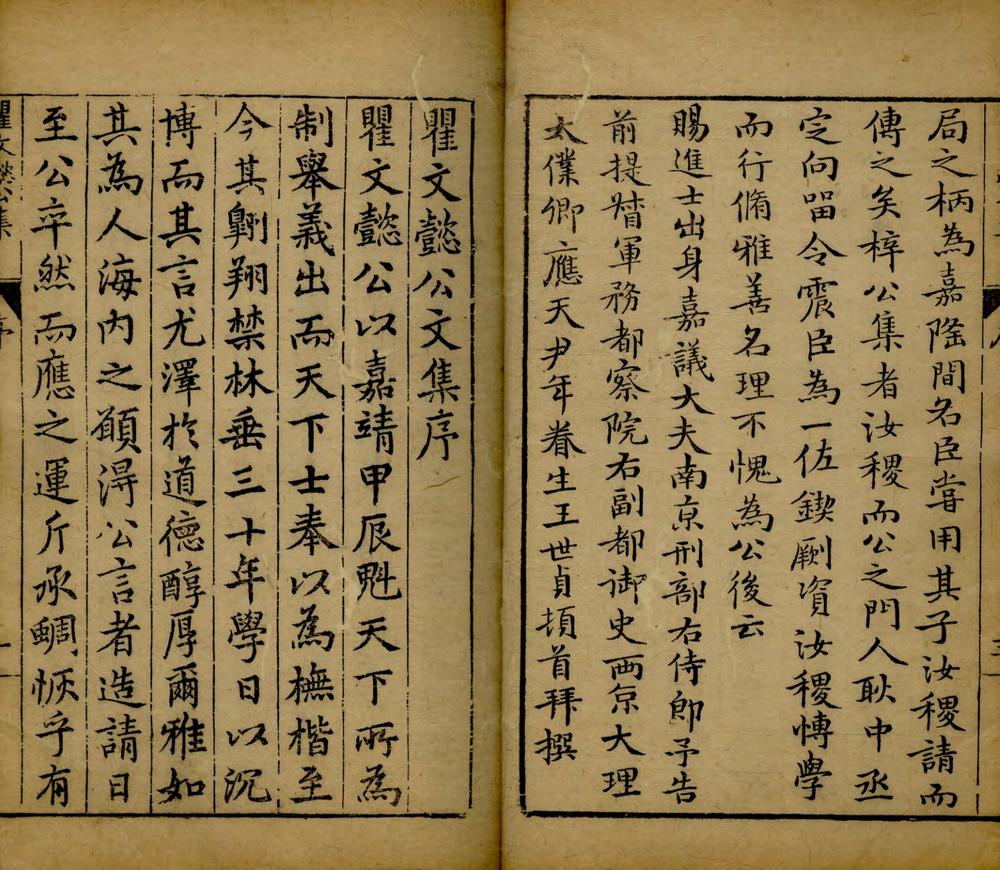 局之柄為嘉隆間名臣嘗用其子汝稷請而
傳之矣梓公集者汝稷而公之門人耿中丞
定向㽞令震臣為一佐鍥劂資汝稷愽學
而行脩雅善名理不愧為公後云
賜進士出身嘉議大夫南京刑部右侍郎予告
前提督軍務都察院右副都御史兩京大理
太僕卿應天尹年眷生王世貞頓首拜撰
瞿文懿公文集序
瞿文懿公以嘉靖甲辰魁天下所為
制舉義出而天下士奉以為橅楷至
今其翺翔禁林垂三十年學日以沉
博而其言尤澤於道德醇厚爾雅如
其為人海内之願淂公言者造請日
至公卒然而應之運斤承蜩恢乎有
瞿文懿公集